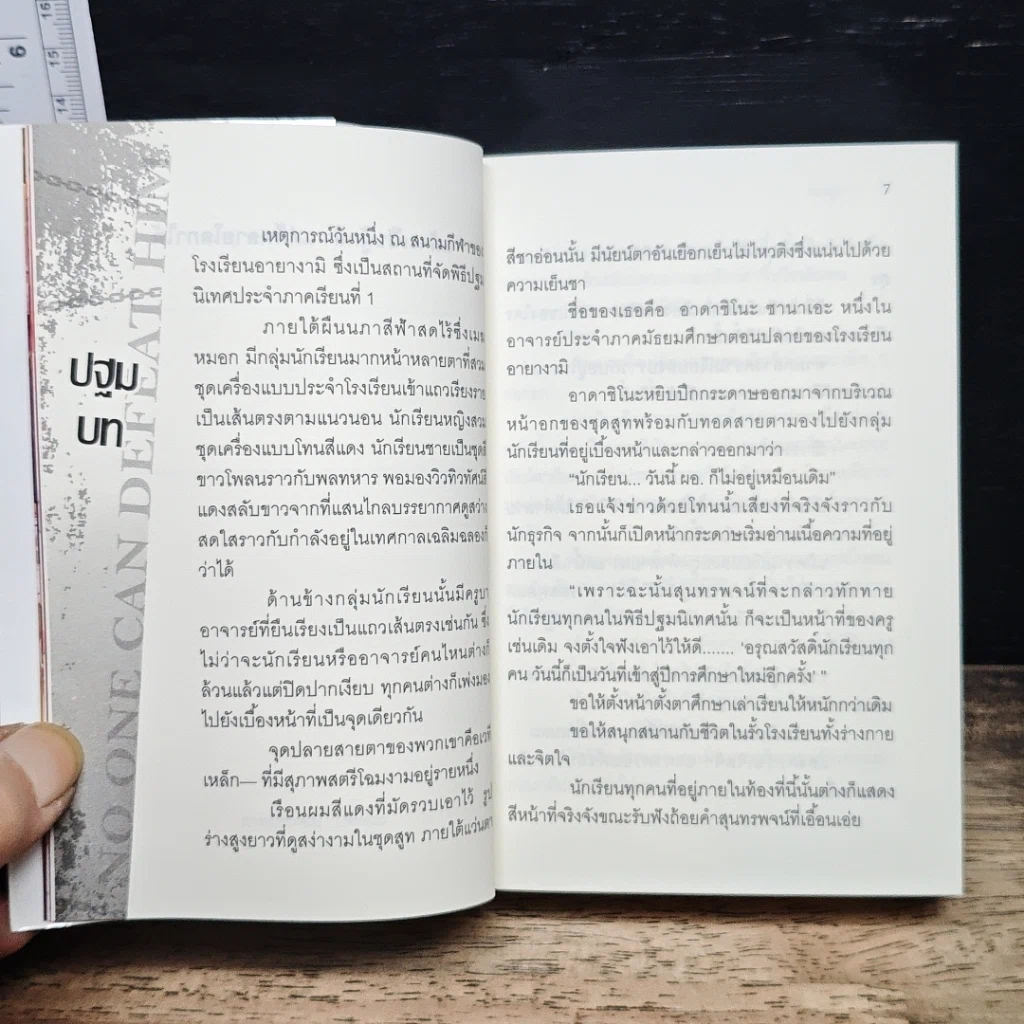 6
16
15
14
NO ONE CAN DEFEAT HIM
ปฐม
บท
เหตุการณ์วันหนึ่ง ณ สนามกีฬาของ
โรงเรียนอายางามิ ซึ่งเป็นสถานที่จัดพิธีปฐม
นิเทศประจำภาคเรียนที่ 1
ภายใต้ผืนนภาสีฟ้าสดไร้ซึ่งเมฆ
หมอก มีกลุ่มนักเรียนมากหน้าหลายตาที่สวม
ชุดเครื่องแบบประจำโรงเรียนเข้าแถวเรียงราย
เป็นเส้นตรงตามแนวนอน นักเรียนหญิงสวม
ชุดเครื่องแบบโทนสีแดง นักเรียนชายเป็นชุดสี
ขาวโพลนราวกับพลทหาร พอมองวิวทิวทัศน์สี
แดงสลับขาวจากที่แสนไกลบรรยากาศดูสว่าง
สดใสราวกับกำลังอยู่ในเทศกาลเฉลิมฉลองก็
ว่าได้
ด้านข้างกลุ่มนักเรียนนั้นมีครูบา
อาจารย์ที่ยืนเรียงเป็นแถวเส้นตรงเช่นกัน ซึ่ง
ไม่ว่าจะนักเรียนหรืออาจารย์คนไหนต่างก็
ล้วนแล้วแต่ปิดปากเงียบ ทุกคนต่างก็เพ่งมอง
ไปยังเบื้องหน้าที่เป็นจุดเดียวกัน
จุดปลายสายตาของพวกเขาคือเวที
เหล็ก— ที่มีสุภาพสตรีโฉมงามอยู่รายหนึ่ง
เรือนผมสีแดงที่มัดรวบเอาไว้ รูป
ร่างสูงยาวที่ดูสง่างามในชุดสูท ภายใต้แว่นตา
7
สีชาอ่อนนั้น มีนัยน์ตาอันเยือกเย็นไม่ไหวติงซึ่งแน่นไปด้วย
ความเย็นชา
ชื่อของเธอคือ อาดาชิโนะ ซานาเอะ หนึ่งใน
อาจารย์ประจำภาคมัธยมศึกษาตอนปลายของโรงเรียน
อายางามิ
อาดาชิโนะหยิบปึกกระดาษออกมาจากบริเวณ
หน้าอกของชุดสูทพร้อมกับทอดสายตามองไปยังกลุ่ม
นักเรียนที่อยู่เบื้องหน้าและกล่าวออกมาว่า
"นักเรียน... วันนี้ ผอ. ก็ไม่อยู่เหมือนเดิม"
เธอแจ้งข่าวด้วยโทนน้ำเสียงที่จริงจังราวกับ
นักธุรกิจ จากนั้นก็เปิดหน้ากระดาษเริ่มอ่านเนื้อความที่อยู่
ภายใน
"เพราะฉะนั้นสุนทรพจน์ที่จะกล่าวทักทาย
นักเรียนทุกคนในพิธีปฐมนิเทศนั้น ก็จะเป็นหน้าที่ของครู
เช่นเดิม จงตั้งใจฟังเอาไว้ให้ดี....... 'อรุณสวัสดิ์นักเรียนทุก
คน วันนี้ก็เป็นวันที่เข้าสู่ปีการศึกษาใหม่อีกครั้ง' "
ขอให้ตั้งหน้าตั้งตาศึกษาเล่าเรียนให้หนักกว่าเดิม
ขอให้สนุกสนานกับชีวิตในรั้วโรงเรียนทั้งร่างกาย
และจิตใจ
นักเรียนทุกคนที่อยู่ภายในท้องที่นี้นั้นต่างก็แสดง
สีหน้าที่จริงจังขณะรับฟังถ้อยคำสุนทรพจน์ที่เอื้อนเอ่ย